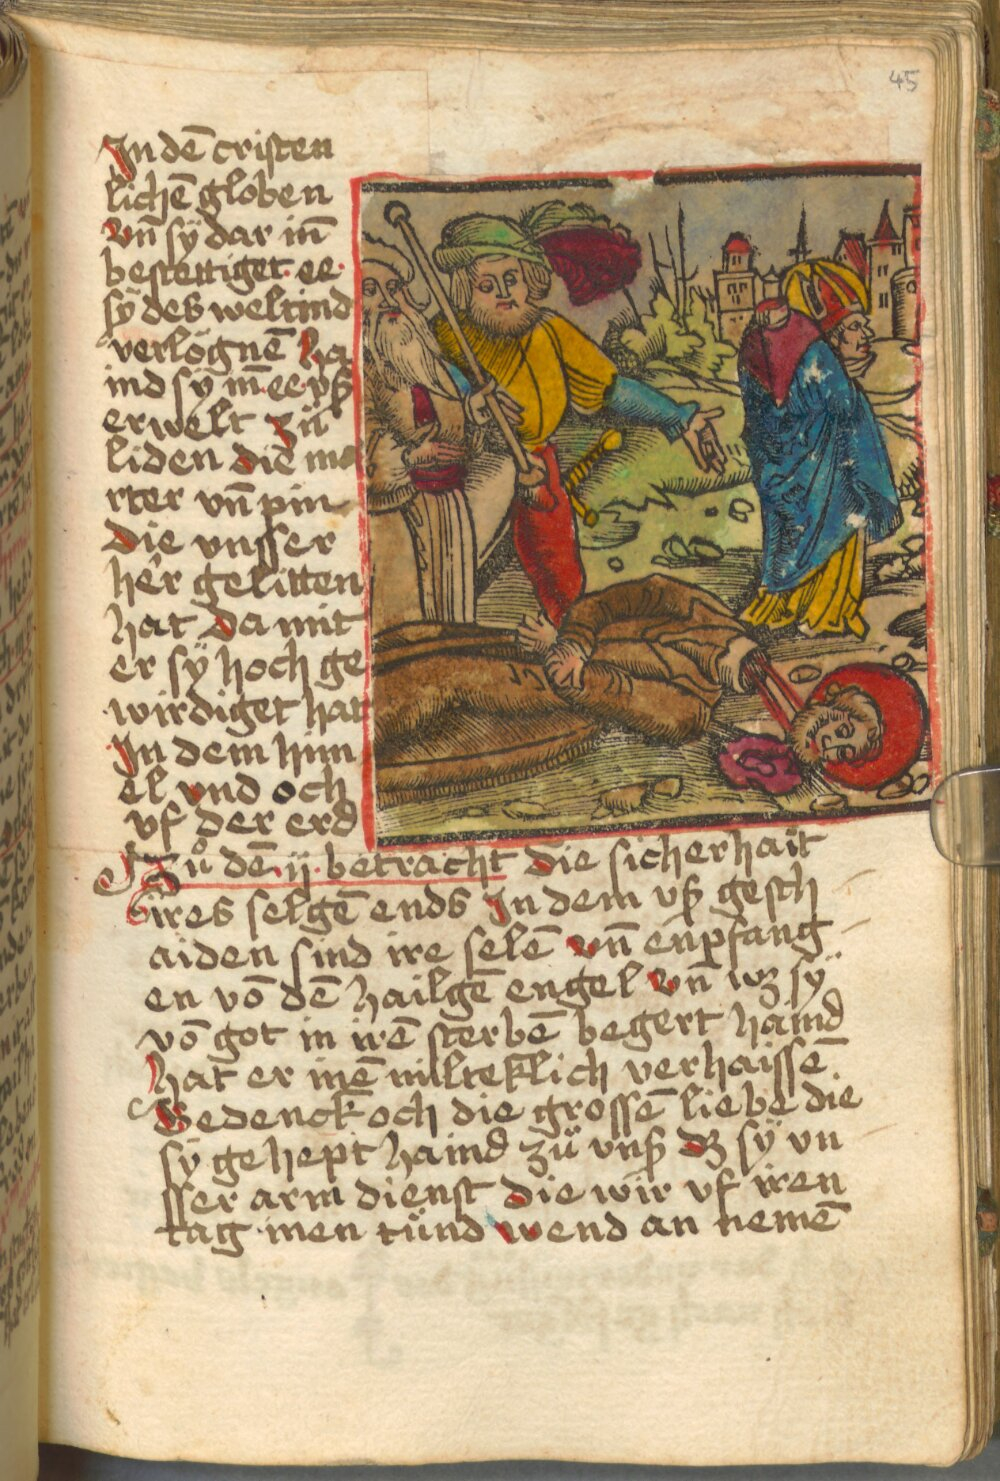 45
In dē cristen
lichē globen
vn̄ sÿ dar in̄
bestettiget ee
sÿ des weltind
verlögnē ha
ind sÿ
erwelt zů
liden die ma
rter vn̄ pin
die vnsser
her gelitten
hat da mit
er sÿ hoch ge
wirdiget hat
In dem him
el vnd och
vf der erd
Zů dē ij betracht die sicherhait
ires selgē ends In dem vß gesch
aiden sind ire selē vn̄ enpfang
en vō dē hailgē engel vn̄ wz sÿ
vō got in irē sterbē begert haind
hat er inē milteklich verhaissē
Bedenck och die grossē liebe die
sÿ gehept haind zů vnß dz sÿ vn
sser arm dienst die wir vf iren
tag inen tůnd wend an nemē